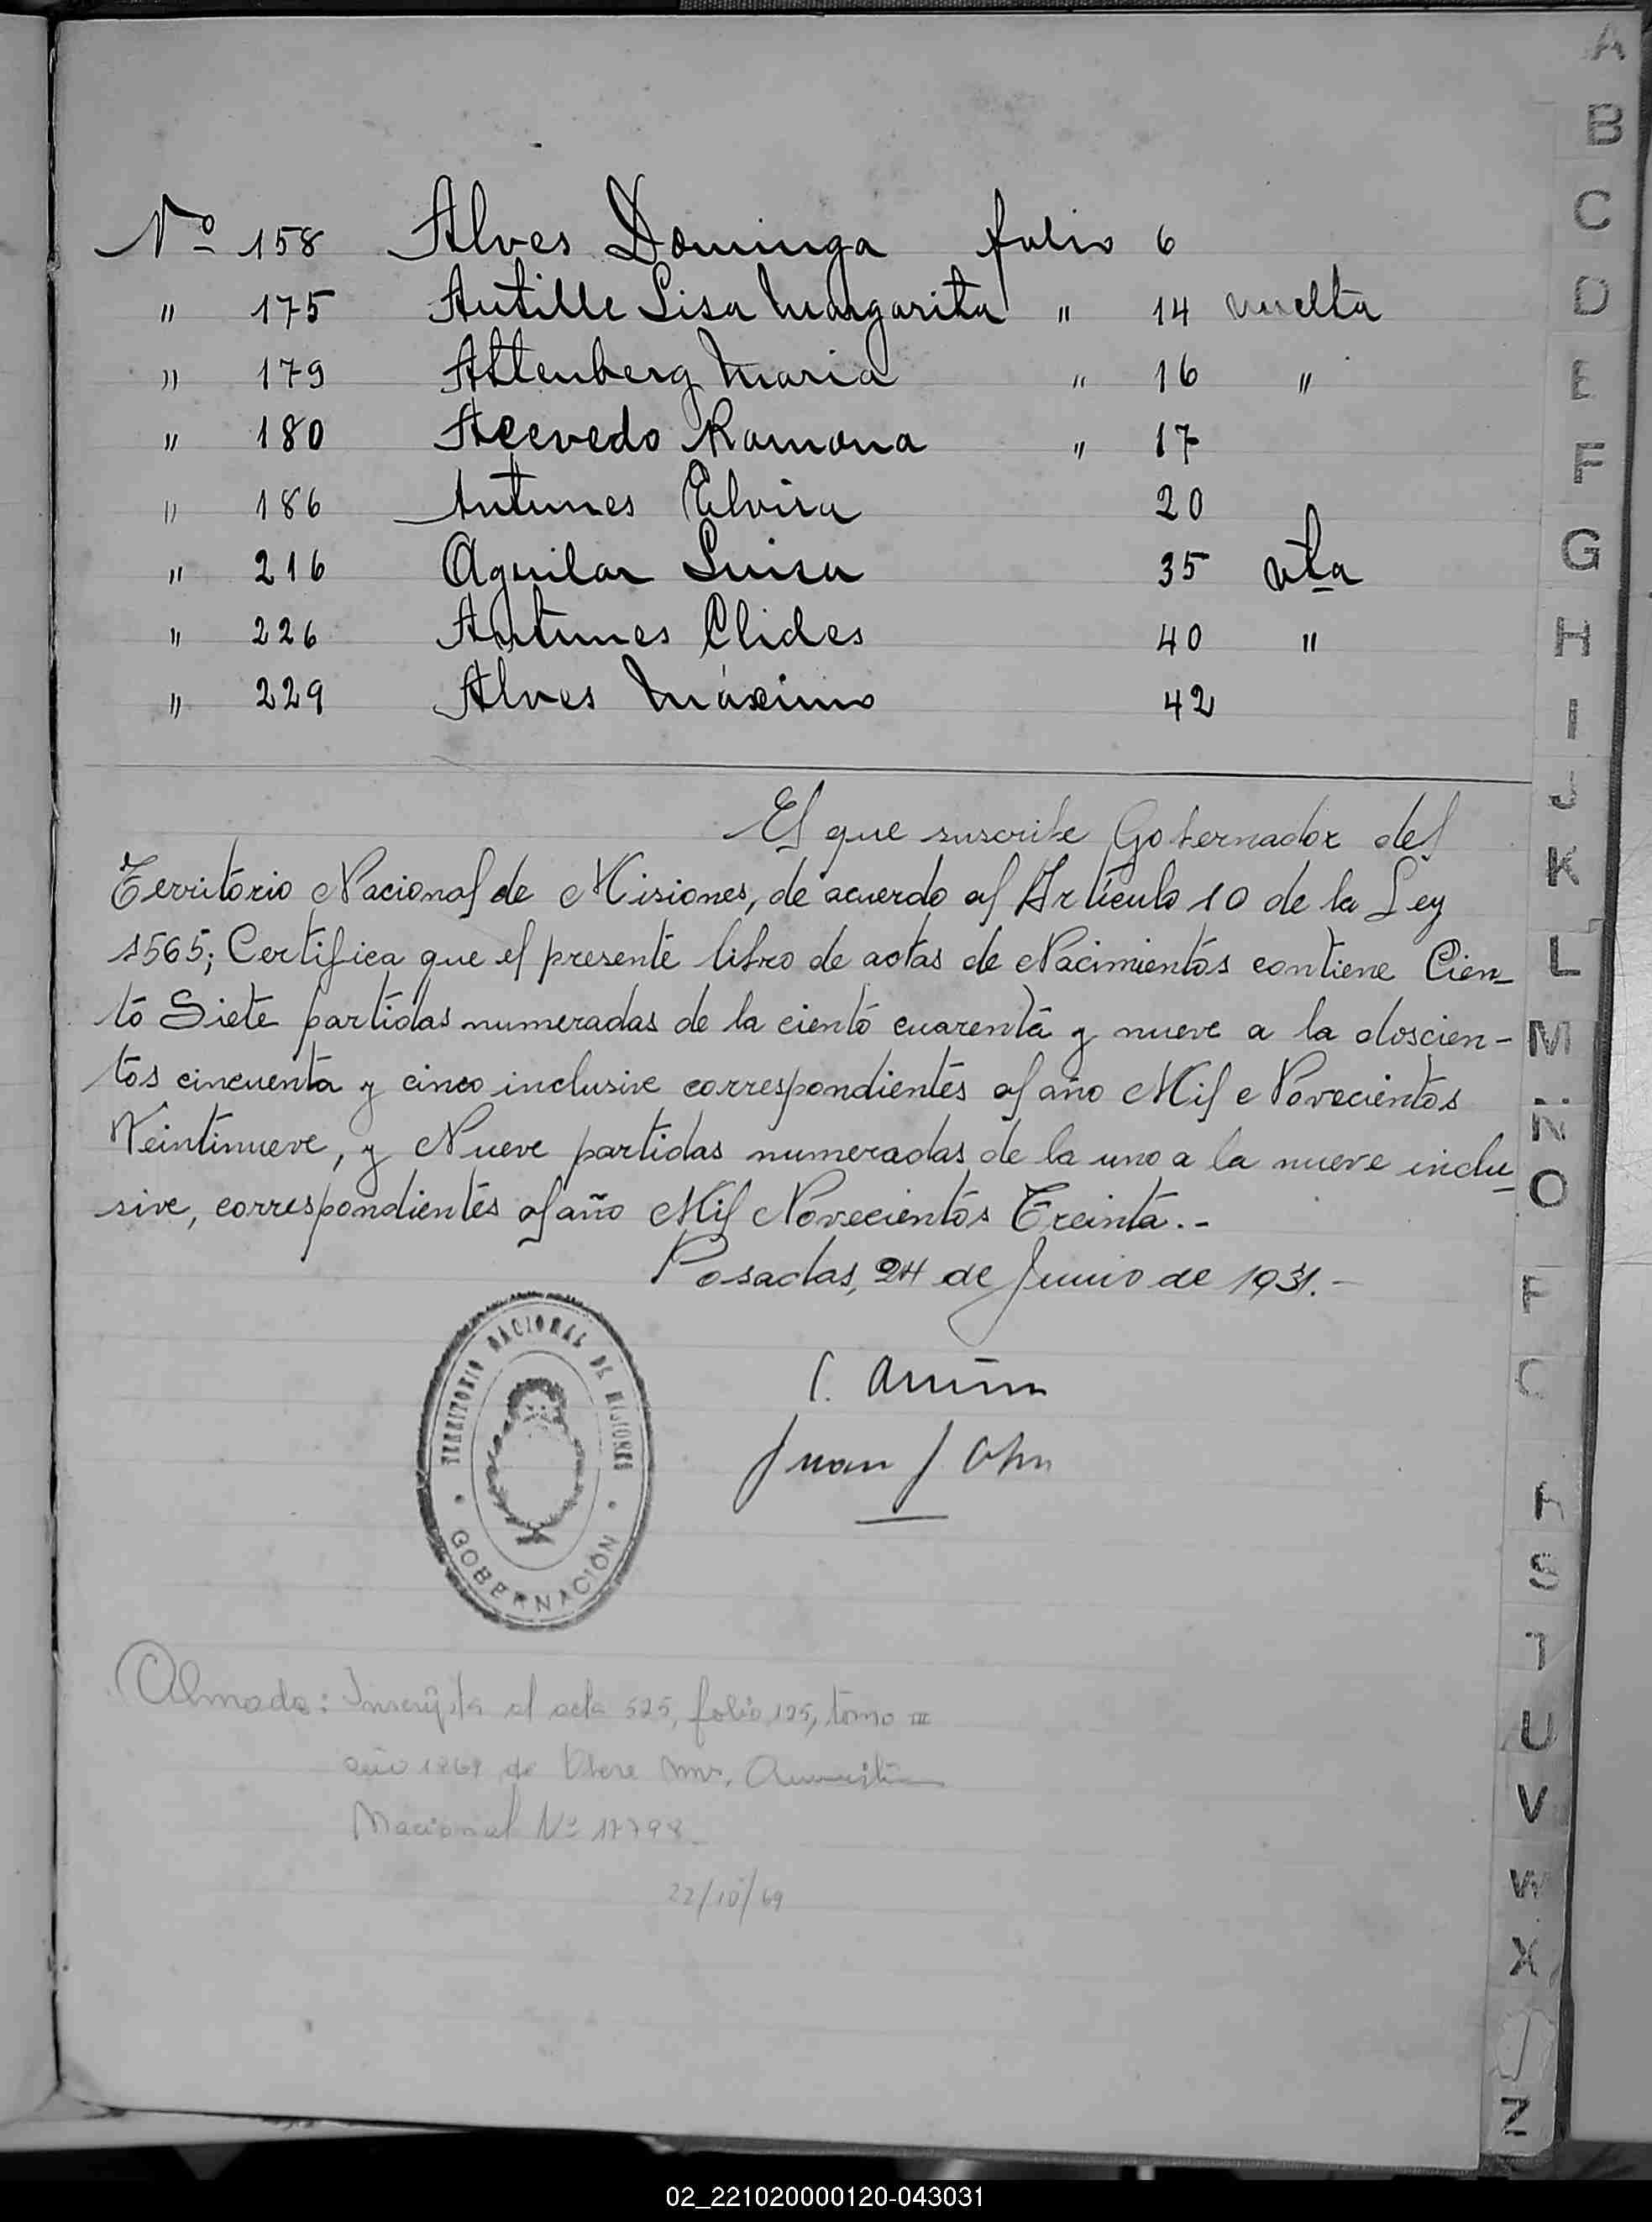 Nº 158 Alves Dominga folio 6
" 175 Autille Lisa Margarita " 14 vuelta
" 179 Altenberg Maria " 16 "
" 180 Acevedo Ramona " 17
" 186 Antunes Elvira 20
" 216 Aguilar Luisa 35 vta
" 226 Antunes Clides 40 "
" 229 Alves Máximo 42
El que suscribe Gobernador del
Territorio Nacional de Misiones, de acuerdo al Artículo 10 de la Ley
1565; Certifica que el presente libro de actas de Nacimientos contiene Cien-
to Siete partidas numeradas de la ciento cuarenta y nueve a la doscien-
tos cincuenta y cinco inclusive correspondientes al año Mil Novecientos
Veintinueve, y Nueve partidas numeradas de la uno a la nueve inclu-
sive, correspondientes al año Mil Novecientos Treinta.-
Posadas, 24 de Junio de 1931.-
Juan J
TERRITORIO NACIONAL DE MISIONES
GOBERNACIÓN
Almada: Inscripta al acta 525, folio 125, tomo III
año 1969 de Obera Mns.
Nacional Nº 17798
22/10/69
A
B
C
D
E
F
G
H
I
J
K
L
M
N
Ñ
O
F
C
R
S
T
U
V
W
X
Z
02_221020000120-043031